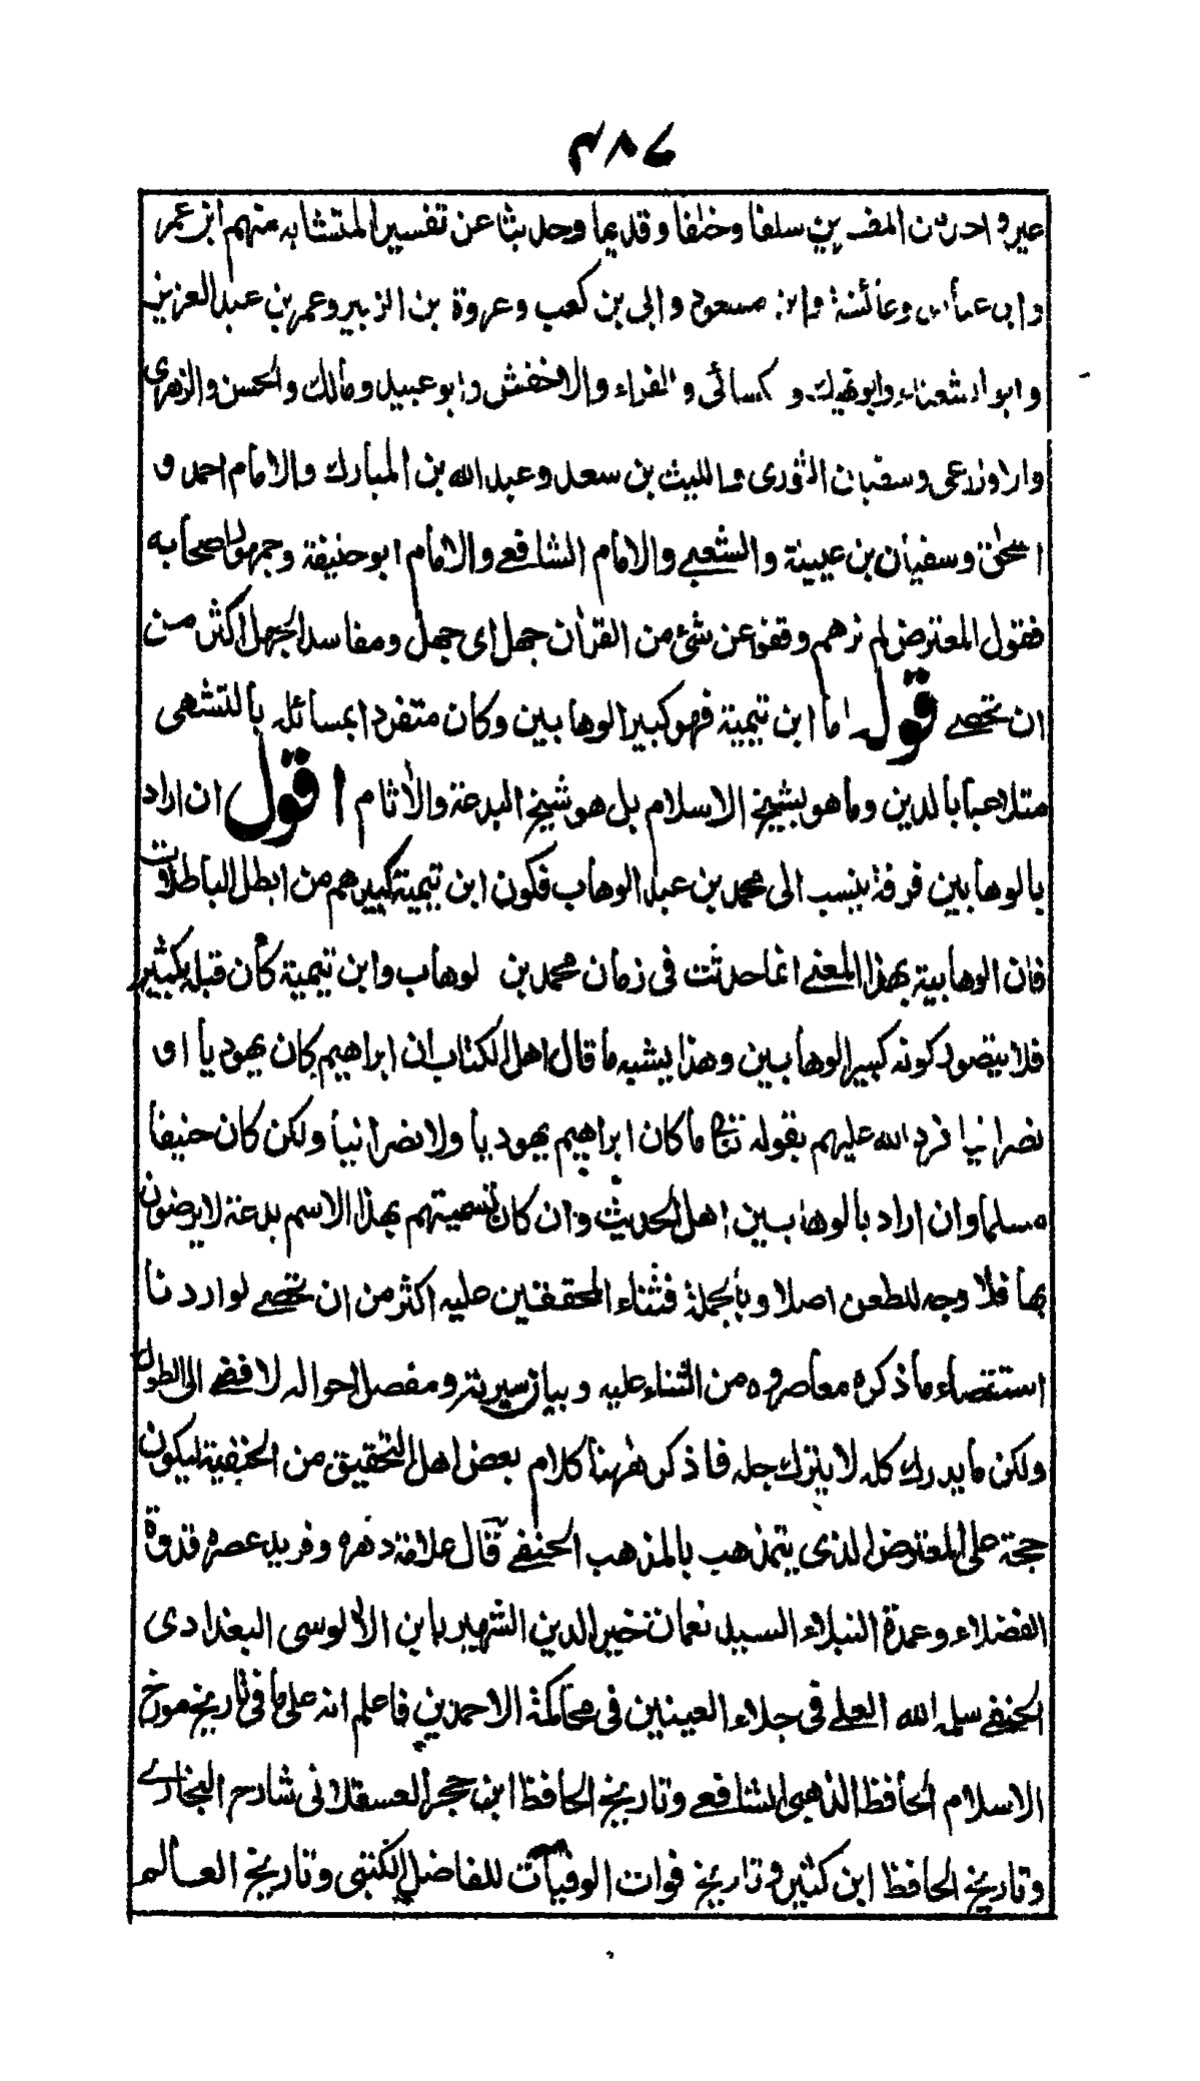 ٤٨٧
المفسرين سلفا وخلفا وقديما وحديثا عن تفسير المتشابه منهم ابن عمر
وابن عباس وعائشة وابن مسعود وابى بن كعب وعروة بن الزبير وعمر بن عبد العزيز
وابو الشعثاء وابو نهيك و كسائى و الفراء والاخفش وابو عبيد ومالك والحسن والزهرى
والاوزاعى وسفيان الثورى والليث بن سعد وعبد الله بن المبارك والامام احمد و
اسحق وسفيان بن عيينة والشعبے والامام الشافعے والامام ابو حنيفة وجمهور اصحابه
فقول المعترض لم نرهم وقفوا عن شئ من القرأن جهل اى جهل ومفاسد الجهل اكثر من
ان تحصے قوله اما ابن تيمية فهو كبير الوهابيين وكان متفردا بمسائله بالتشهى
متلاعبا بالدين وما هو بشيخ الاسلام بل هو شيخ البدعة والأثام اقول ان اراد
بالوهابين فرقة ينسب الى محمد بن عبد الوهاب فكون ابن تيمية كبيرهم من ابطل الباطلات
فان الوهابية بهذا المعنے انما حدثت فى زمان محمد بن لوهاب وابن تيمية كان قبله بكثير
فلا يتصور كونه كبير الوهابين وهذا يشبه ما قال اهل الكتاب ان ابراهيم كان يهوديا او
نصرانيا فرد الله عليهم بقوله تعالى ما كان ابراهيم يهوديا ولا نصرانيا ولكن كان حنيفا
مسلما وان اراد بالوهابيين اهل الحديث وان كان تسميتهم بهذا الاسم بدعة لا يرضون
بها فلا وجه للطعن اصلا وبالجملة فثناء المحققين عليه اكثر من ان تحصے لو اردنا
استقصاء ما ذكره معاصروه من الثناء عليه وبيان سيرته ومفصل احواله لافضے الى الطول
ولكن ما يدرك كله لا يترك جله فاذكر ههنا كلام بعض اهل التحقيق من الحنفية ليكون
حجة على المعترض الذى يتمذهب بالمذهب الحنفے قال علامة دهره وفريد عصره قدوة
الفضلاء وعمدة النبلاء السيد نعمان خير الدين الشهير بابن الألوسى البغدادى
الحنفے سلمه الله العلے فى جلاء العينين فى محاكمة الاحمدين فاعلم انه على ما فى تاريخ مورخ
الاسلام الحافظ الذهبى الشافعے وتاريخ الحافظ ابن حجر العسقلانى شارح البخارے
وتاريخ الحافظ ابن كثير وتاريخ فوات الوفيات للفاضل الكتبى وتاريخ العالم